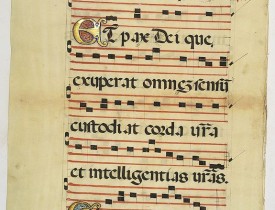 ET pax Dei que,
exuperat omneʒ sensū
custodiat corda vr̃a
et intelligentias vr̃as.